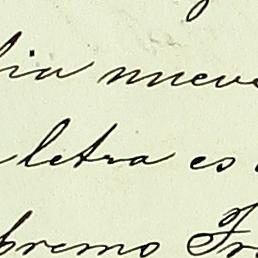 nueve
letra es
premo Fr